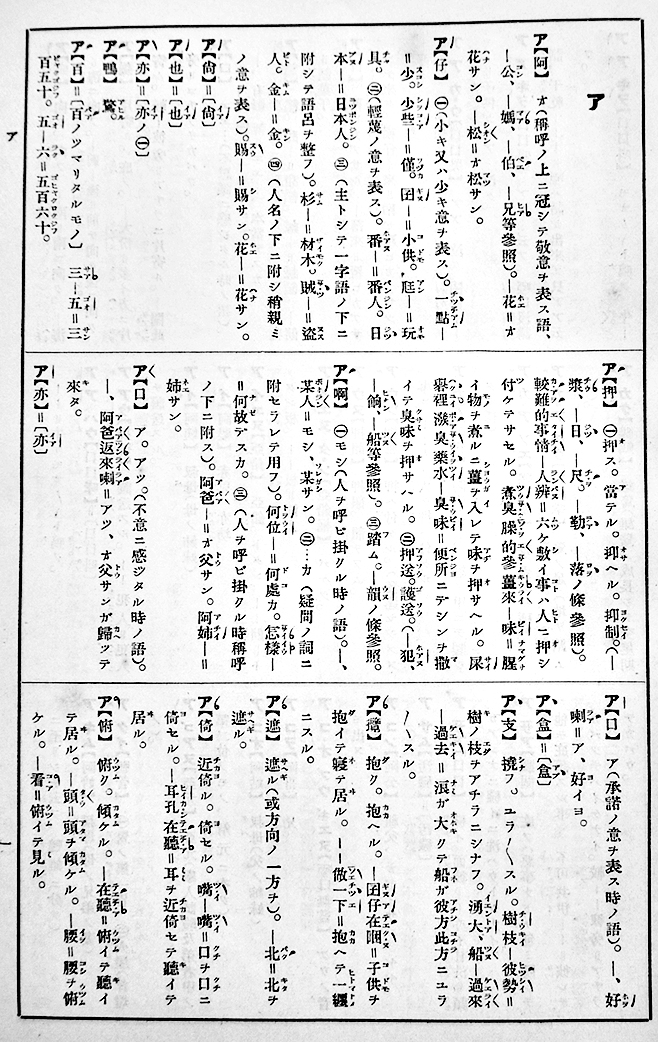 ア
ア【阿】 オ(稱呼ノ上ニ冠シテ敬意ヲ表ス語、
―公、―媽、―伯、―兄等參照)。―花=オ
花サン。―松=オ松サン。
ア【仔】 ㊀(小キ又ハ少キ意ヲ表ス)。一點―
=少。少些―=僅。囝―=小供。尪―=玩
具。㊁(輕蔑ノ意ヲ表ス)。番―=番人。日
本―=日本人。㊂(主トシテ一字語ノ下ニ
附シテ語呂ヲ整フ)。杉―=材木。賊―=盜
人。金―=金。㊃(人名ノ下ニ附シ稍親ミ
ノ意ヲ表ス)。賜―=賜サン。花―=花サン。
ア【尙】=【尙】
ア【也】=【也】
ア【亦】=【亦ノ㊀】
ア【鴨】 鶩。
ア【百】=【百ノツマリタルモノ】 三―五=三
百五十。五―六=五百六十。
ア【押】 ㊀押ス。當テル。抑ヘル。抑制。(―
漿、―日、―尺。―勒、―落ノ條參照)。
較難的事情―人辨=六ケ敷イ事ハ人ニ押シ
付ケテサセル。煮臭臊的參薑來―味=腥
イ物ヲ煮ルニ薑ヲ入レテ味ヲ押サヘル。屎
礐裡潑臭藥水―臭味=便所ニテシンヲ撒
イテ臭味ヲ押サヘル。㊁押送。護送。(―犯、
―餉、―船等參照)。㊂踏ム。―韻ノ條參照。
ア【啊】 ㊀モシ(人ヲ呼ビ掛クル時ノ語)。―、
某人=モシ、某サン。㊁…カ(疑問ノ詞ニ
附セラレテ用フ)。何位―=何處カ。怎樣―
=何故テスカ。㊂(人ヲ呼ビ掛クル時稱呼
ノ下ニ附ス)。阿爸―=オ父サン。阿姉―=
姉サン。
ア【口】 ア。アツ。(不意ニ感ジタル時ノ語)。
―、阿爸返來喇=アツ、オ父サンガ歸ツテ
來タ。
ア【亦】=【亦】
ア【口】 ア(承諾ノ意ヲ表ス時ノ語)。―、好
喇=ア、好イヨ。
ア【盒】=【盒】
ア【支】 撓フ。ユラ〳〵スル。樹枝―彼勢=
樹ノ枝ヲアチラニシナフ。湧大、船―過來
―過去=浪ガ大クテ船ガ彼方此方ニユラ
〳〵スル。
ア【攬】 抱ク。抱ヘル。―囝仔在睏=子供ヲ
抱イテ寢テ居ル。―做一下=抱ヘテ一纏
ニスル。
ア【遮】 遮ル(或方向ノ一方ヲ)。―北=北ヲ
遮ル。
ア【倚】 近倚ル。倚セル。嘴―嘴=口ヲ口ニ
倚セル。―耳孔在聽=耳ヲ近倚セテ聽イテ
居ル。
ア【俯】 俯ク。傾ケル。―在聽=俯イテ聽イ
テ居ル。―頭=頭ヲ傾ケル。―腰=腰ヲ俯
ケル。―看=俯イテ見ル。
ア
一